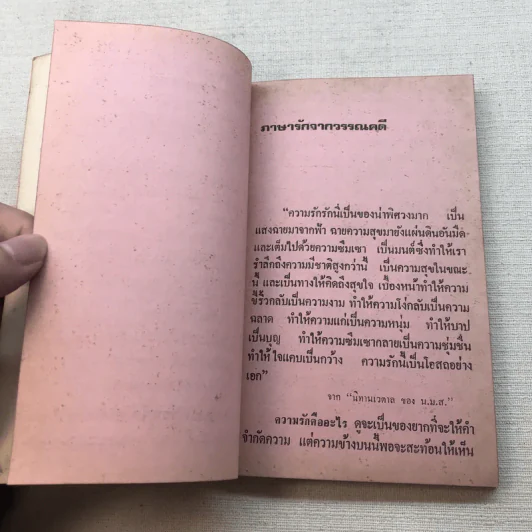 ภาษารักจากวรรณคดี
“ความรักรักนี้เป็นของน่าพิศวงมาก เป็น
แสงฉายมาจากฟ้า ฉายความสุขมายังแผ่นดินอันมืด-
และเต็มไปด้วยความซึมเซา เป็นมนต์ซึ่งทำให้เรา
รำลึกถึงความมีชาติสูงกว่านี้ เป็นความสุขในขณะ
นี้ และเป็นทางให้คิดถึงสุขใจ เบื้องหน้าทำให้ความ
ขี้ริ้วกลับเป็นความงาม ทำให้ความโง่กลับเป็นความ
ฉลาด ทำให้ความแก่เป็นความหนุ่ม ทำให้บาป
เป็นบุญ ทำให้ความซึมเซากลายเป็นความชุ่มชื่น
ทำให้ใจแคบเป็นกว้าง ความรักนี้เป็นโอสถอย่าง
เอก”
จาก “นิทานเวตาล ของ น.ม.ส.”
ความรักคืออะไร ดูจะเป็นของยากที่จะให้คำ
จำกัดความ แต่ความข้างบนนี้พอจะสะท้อนให้เห็น